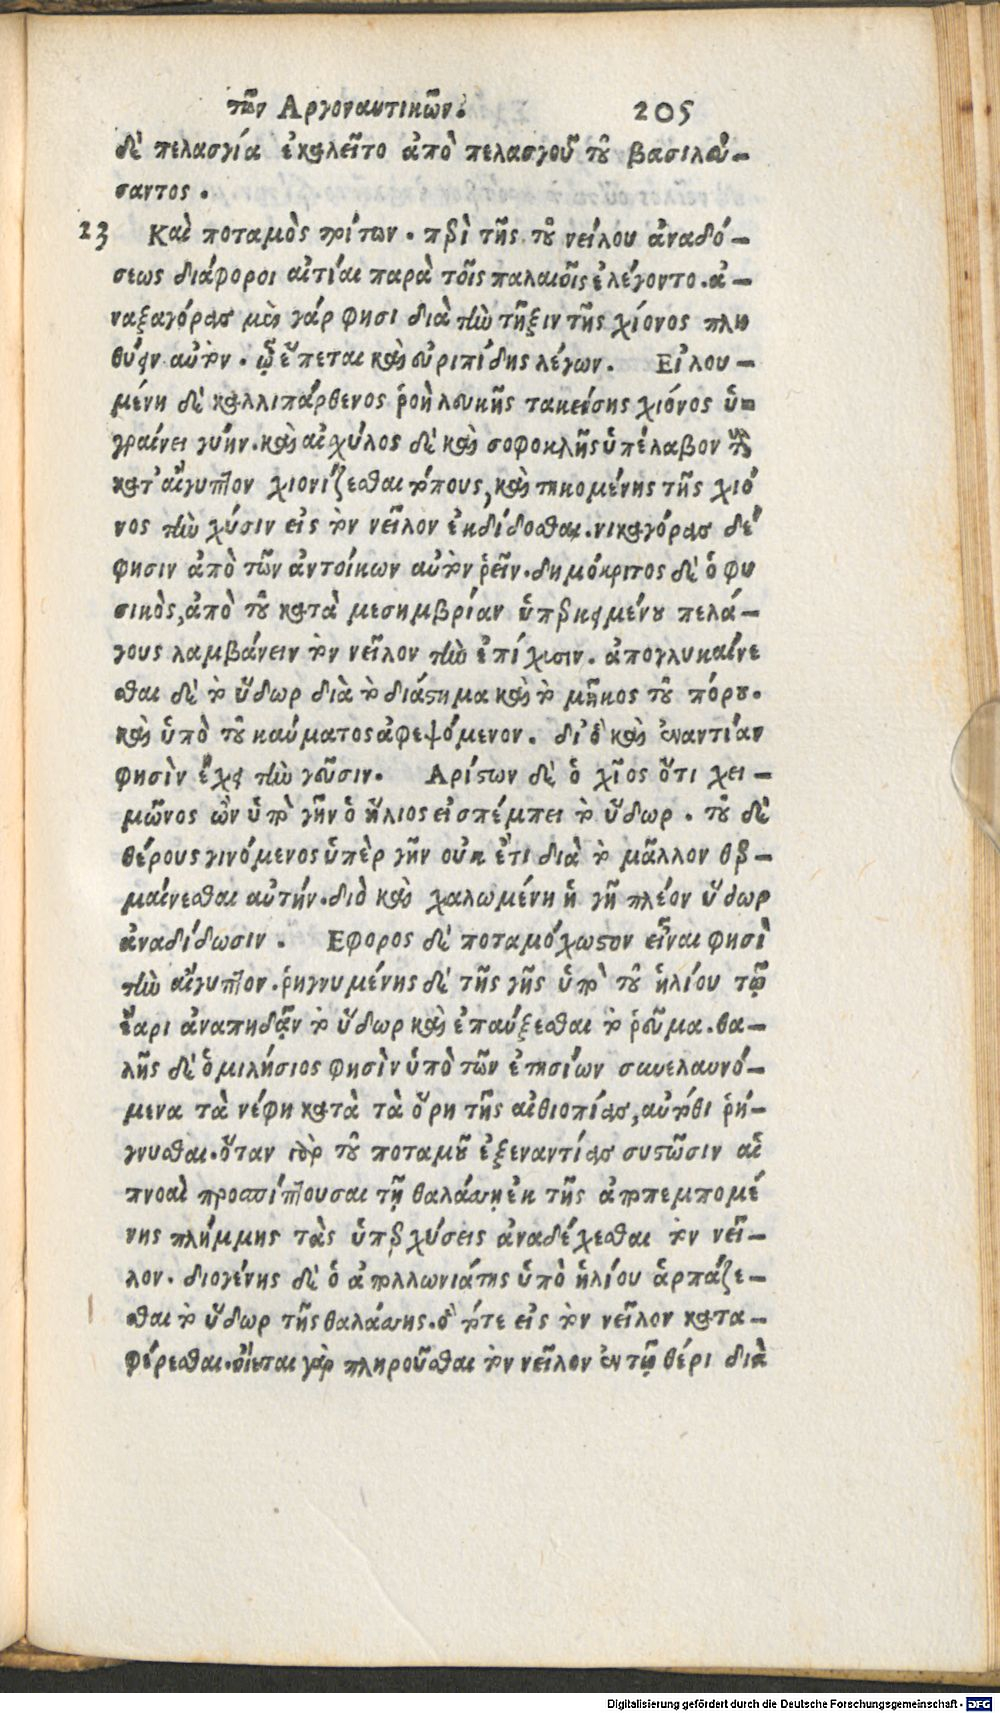 τῶν Αργοναυτικῶν. 205
δὲ πελασγία ἐκαλεῖτο ἀπὸ πελασγοῦ τοῦ βασιλεύ-
σαντος.
23 Καὶ ποταμὸς τρίτων. περὶ τῆς τοῦ νείλου ἀναδό-
σεως διάφοροι αἰτίαι παρὰ τοῖς παλαιοῖς ἐλέγοντο. ἀ-
ναξαγόρας μὲν γάρ φησι διὰ τὴν τῆξιν τῆς χίονος πλη
θύειν αὐτὸν. ᾧ ἕπεται καὶ εὐριπίδης λέγων. Εἰλου-
μένη δὲ καλλιπάρθενος ῥοὴ λευκῆς τακείσης χιόνος ὑ-
γραίνει γύην. καὶ αἰχύλος δὲ καὶ σοφοκλῆς ὑπέλαβον τοὺς
κατ' αἴγυπτον χιονίζεσθαι τόπους, καὶ τηκομένης τῆς χιό
νος τὴν χύσιν εἰς τὸν νεῖλον ἐκδίδοσθαι. νικαγόρας δέ
φησιν ἀπὸ τῶν ἀντοίκων αὐτὸν ῥεῖν. δημόκριτος δὲ ὁ φυ
σικὸς, ἀπὸ τοῦ κατὰ μεσημβρίαν ὑπερκειμένου πελά-
γους λαμβάνειν τὸν νεῖλον τὴν ἐπίχισιν. ἀπογλυκαίνε
σθαι δὲ τὸ ὕδωρ διὰ τὸ διάστημα καὶ τὸ μῆκος τοῦ πόρου.
καὶ ὑπὸ τοῦ καύματος ἀφεψόμενον. διὸ καὶ ἐναντίαν
φησὶν ἔχειν τὴν γεῦσιν. Αρίστων δὲ ὁ χῖος ὅτι χει-
μῶνος ὢν ὑπὸ γῆν ὁ ἥλιος εἰσπέμπει τὸ ὕδωρ. τοῦ δὲ
θέρους γινόμενος ὑπὲρ γῆν οὐκ ἔτι διὰ τὸ μᾶλλον θερ-
μαίνεσθαι αὐτήν. διὸ καὶ χαλωμένη ἡ γῆ πλέον ὕδωρ
ἀναδίδωσιν. Εφορος δὲ ποταμόχωστον εἶναι φησὶ
τὴν αἴγυπτον. ῥηγνυμένης δὲ τῆς γῆς ὑπὸ τοῦ ἡλίου τῷ
ἔαρι ἀναπηδᾷν τὸ ὕδωρ καὶ ἐπαύξεσθαι τὸ ῥεῦμα. θα-
λῆς δὲ ὁ μιλήσιος φησὶν ὑπὸ τῶν ἐτησίων συνελαυνό-
μενα τὰ νέφη κατὰ τὰ ὄρη τῆς αἰθιοπίας, αὐτόθι ῥή-
γνυσθαι. ὅταν γὰρ τοῦ ποταμοῦ ἐξεναντίας συστῶσιν αἱ
πνοαὶ προσπίπτουσαι τῇ θαλάσσῃ ἐκ τῆς ἀποπεμπομέ
νης πλήμμης τὰς ὑπερχύσεις ἀναδέχεσθαι τὸν νεῖ-
λον. διογένης δὲ ὁ ἀπολλωνιάτης ὑπὸ ἡλίου ἁρπάζε-
σθαι τὸ ὕδωρ τῆς θαλάσσης. ὃ τότε εἰς τὸν νεῖλον κατα-
φέρεσθαι. οἴεται γὰρ πληροῦσθαι τὸν νεῖλον ἐν τῷ θέρι διὰ
Digitalisierung gefördert durch die Deutsche Forschungsgemeinschaft - DFG